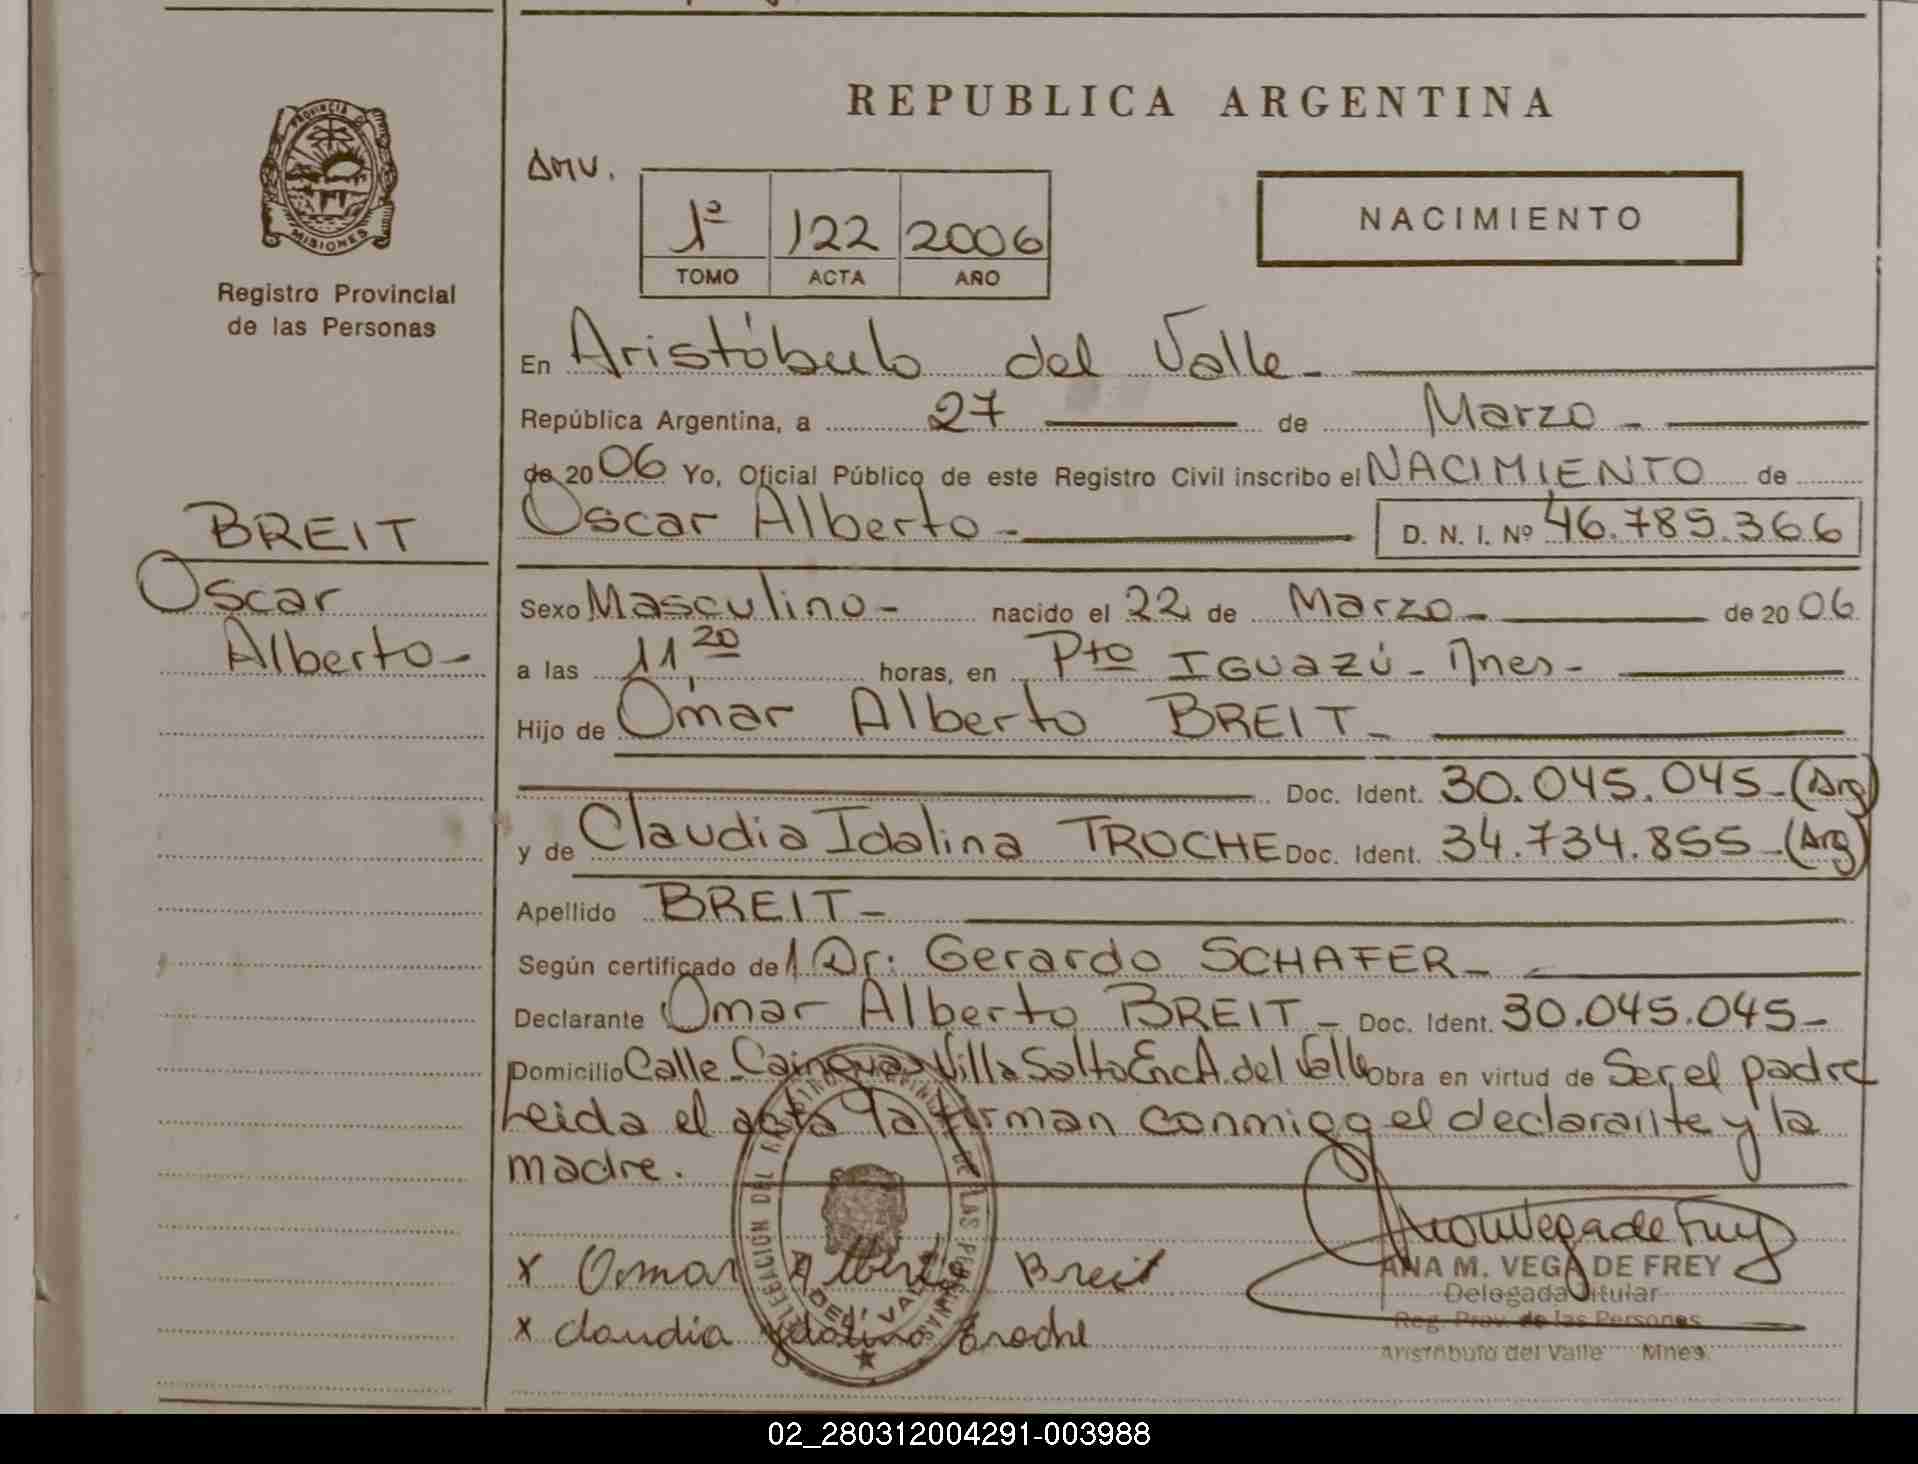 REPUBLICA ARGENTINA
PROVINCIA DE
MISIONES
Registro Provincial
de las Personas
1º 122 2006
TOMO ACTA AÑO
NACIMIENTO
En Aristóbulo del Valle-
República Argentina, a 27 de Marzo-
de 2006 Yo, Oficial Público de este Registro Civil inscribo el NACIMIENTO de
Oscar Alberto- D. N. I. Nº 46.785.366
BREIT
Oscar
Alberto-
Sexo Masculino- nacido el 22 de Marzo- de 2006
a las 11 20 horas, en Pto IGUAZÚ- Mnes-
Hijo de Omar Alberto BREIT-
Doc. Ident. 30.045.045-(Arg)
y de Claudia Idalina TROCHE Doc. Ident. 34.734.855-(Arg)
Apellido BREIT-
Según certificado del Dr: Gerardo SCHAFER-
Declarante Omar Alberto BREIT- Doc. Ident. 30.045.045-
Domicilio Calle Cainguas Villa Salto Enc A. del Valle Obra en virtud de Ser el padre
Leida el acta la firman conmigo el declarante y la
madre.
x Omar Alberto Breit
x Claudia Ydalina Troche
ANA M. VEGA DE FREY
Delegada Titular
Reg. Prov. de las Personas
Aristóbulo del Valle Mnes.
02_280312004291-003988